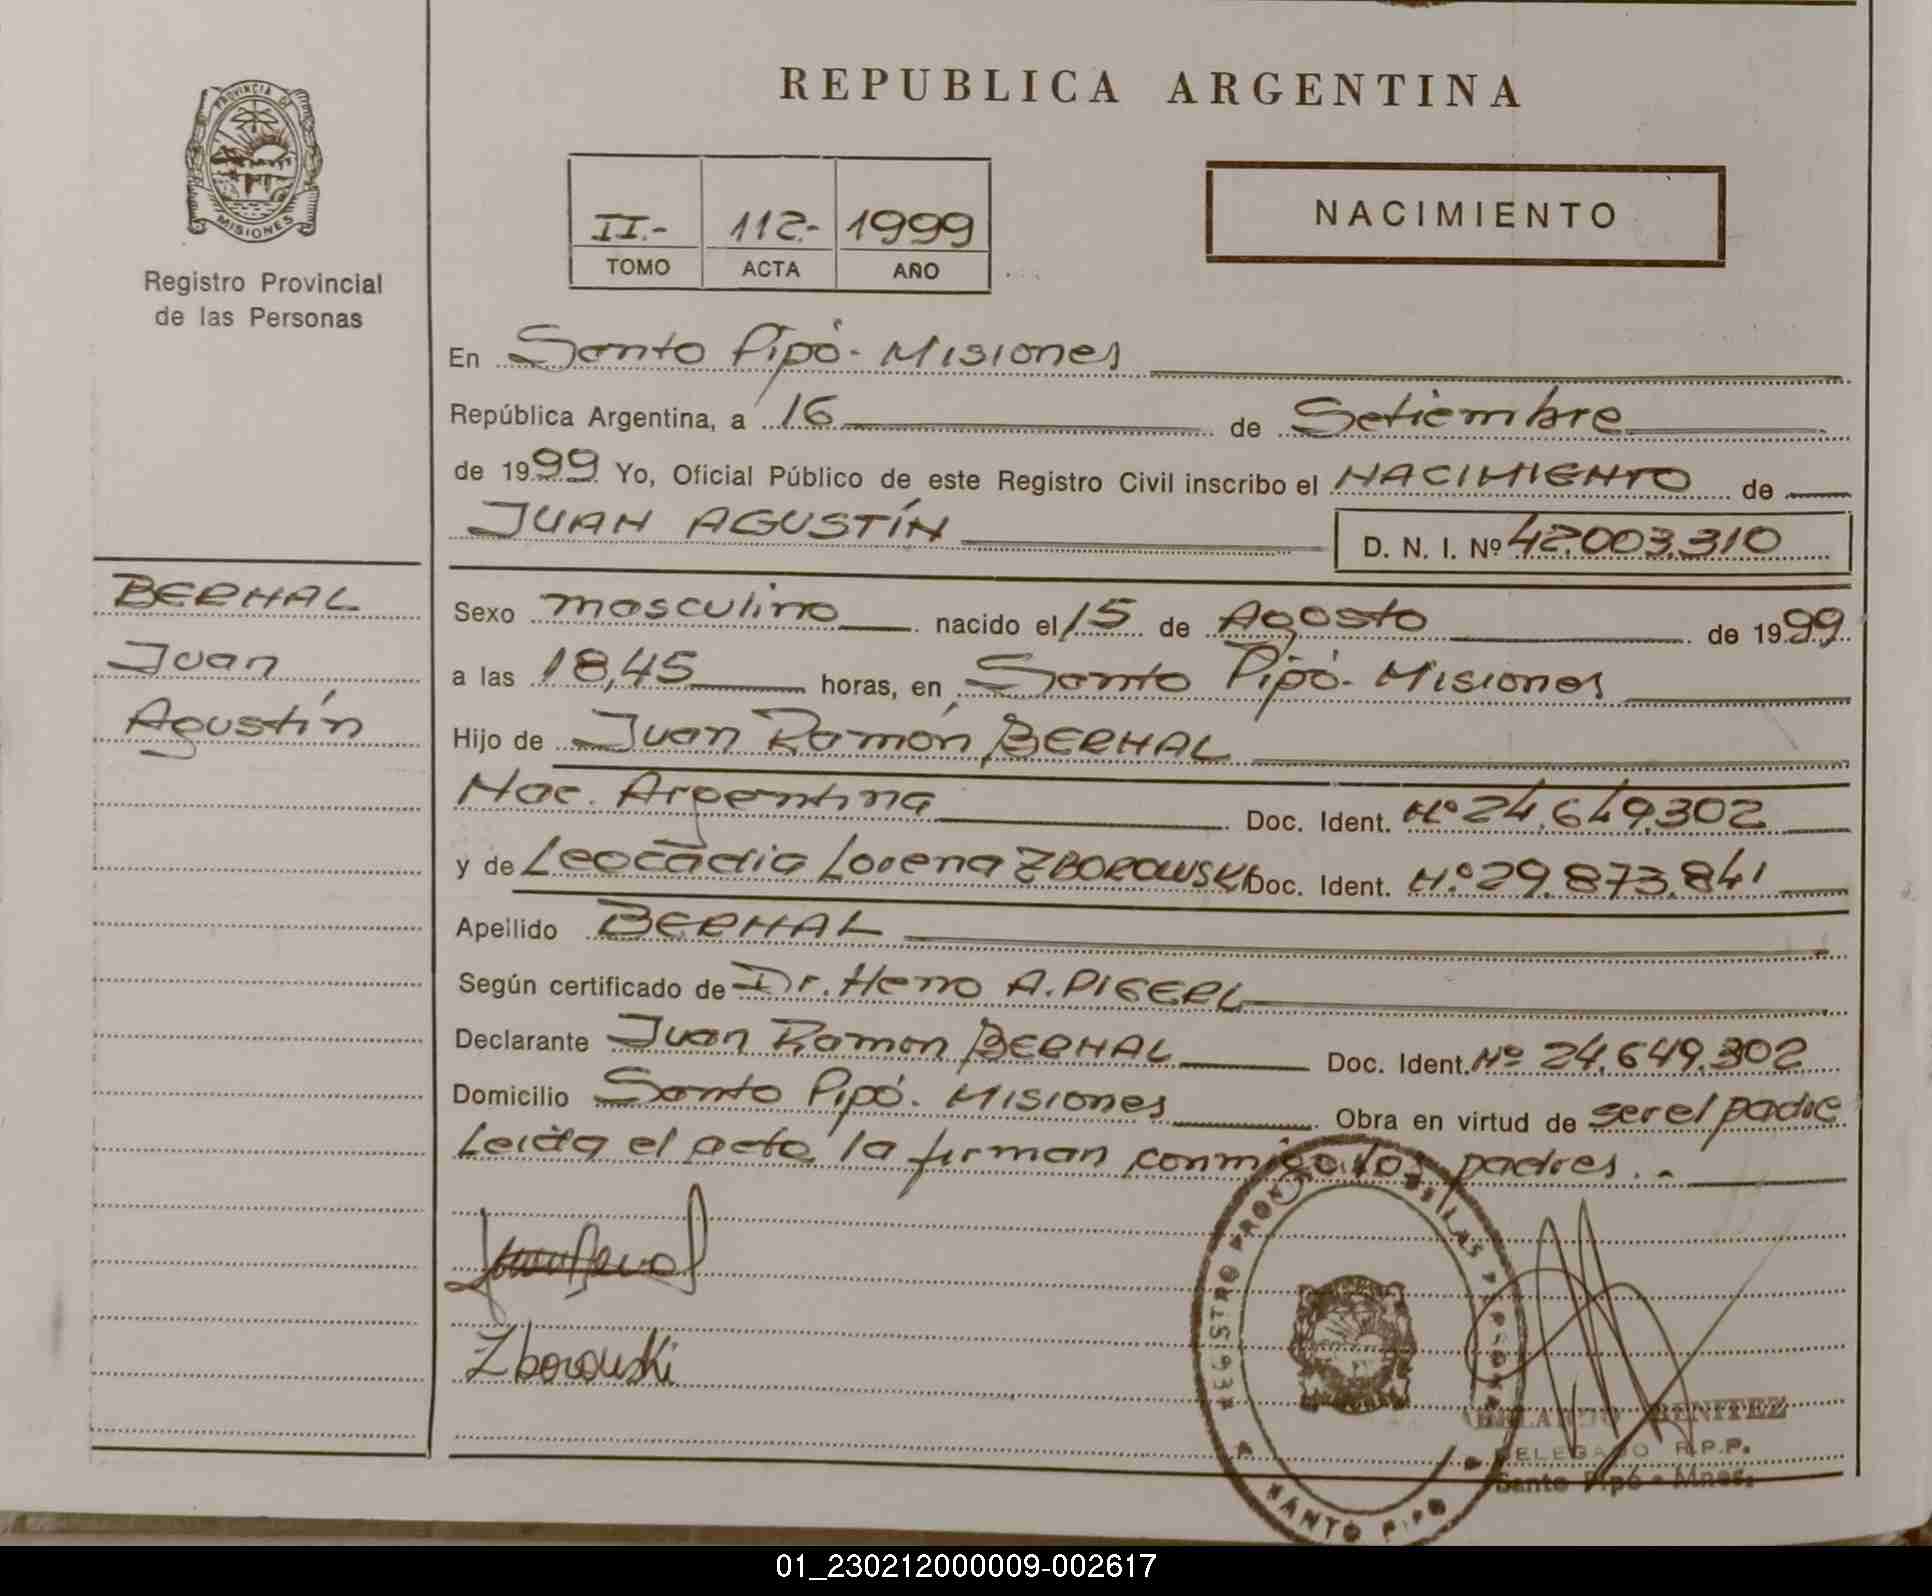 PROVINCIA DE
MISIONES
Registro Provincial
de las Personas
REPUBLICA ARGENTINA
II.- 112.- 1999
TOMO ACTA AÑO
NACIMIENTO
En Santo Pipó - Misiones
República Argentina, a 16 de Setiembre
de 1999 Yo, Oficial Público de este Registro Civil inscribo el NACIMIENTO de
JUAN AGUSTÍN D. N. I. Nº 42.003.310
BERNAL
Juan
Agustín
Sexo masculino nacido el 15 de Agosto de 1999
a las 18,45 horas, en Santo Pipó - Misiones
Hijo de Juan Ramón BERNAL
Nac. Argentina Doc. Ident. Nº 24.649.302
y de Leocadia Lorena ZBOROWSKI Doc. Ident. Nº 29.873.841
Apellido BERNAL
Según certificado de Dr. A. PIGERL
Declarante Juan Ramon BERNAL Doc. Ident. Nº 24.649.302
Domicilio Santo Pipó - Misiones Obra en virtud de ser el padre
Leida el acta la firman conmigo los padres.-
Zborowski
REGISTRO PROVINCIAL DE LAS PERSONAS
SANTO PIPO
BENITEZ
DELEGADO R.P.P.
Santo Pipó - Mnes.
01_230212000009-002617